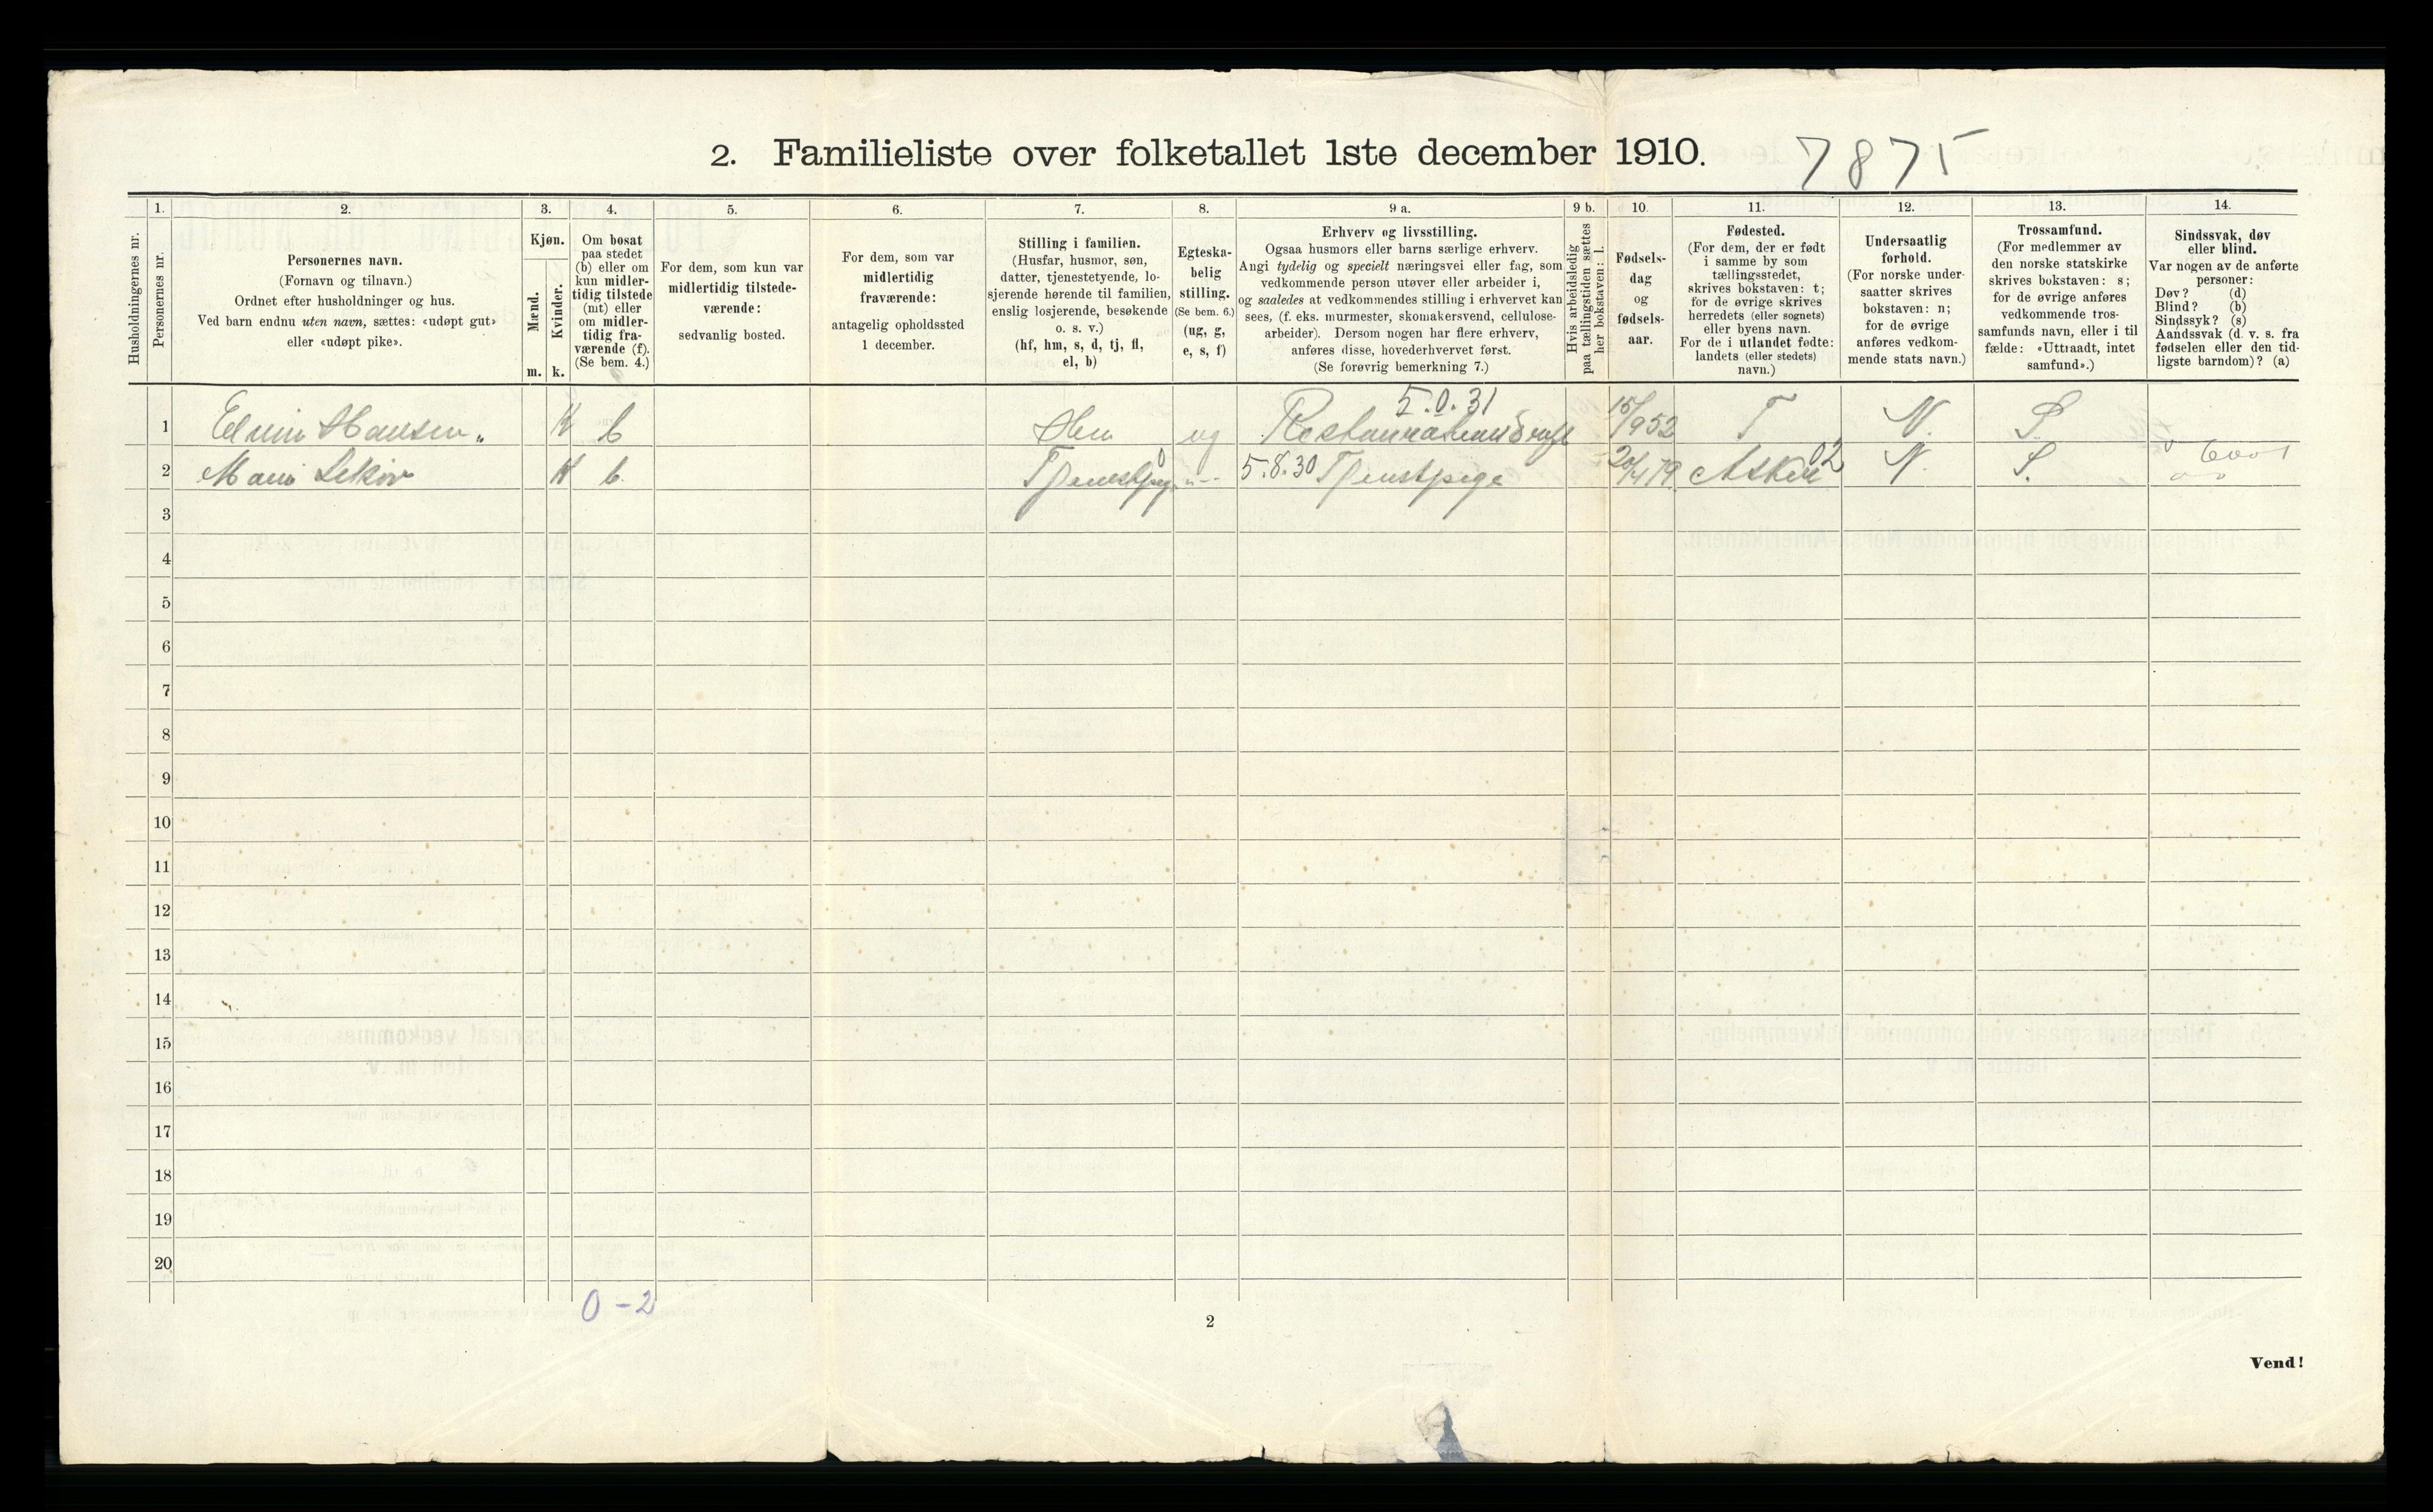 2. Familieliste over folketallet 1ste december 1910.
7875
Husholdningernes nr.
1.
Personernes nr.
2.
Personernes navn.
(Fornavn og tilnavn.)
Ordnet efter husholdninger og hus.
Ved barn endnu uten navn, sættes: «udøpt gut»
eller «udøpt pike».
3.
Kjøn.
Mænd.
m.
Kvinder.
k.
4.
Om bosat
paa stedet
(b) eller om
kun midler-
tidig tilstede
(mt) eller
om midler-
tidig fra-
værende (f).
(Se bem. 4.)
5.
For dem, som kun var
midlertidig tilstede-
værende:
sedvanlig bosted.
6.
For dem, som var
midlertidig
fraværende:
antagelig opholdssted
1 december.
7.
Stilling i familien.
(Husfar, husmor, søn,
datter, tjenestetyende, lo-
sjerende hørende til familien,
enslig losjerende, besøkende
o. s. v.)
(hf, hm, s, d, tj, fl,
el, b)
8.
Egteska-
belig
stilling.
(Se bem. 6.)
(ug, g,
e, s, f)
9 a.
Erhverv og livsstilling.
Ogsaa husmors eller barns særlige erhverv.
Angi tydelig og specielt næringsvei eller fag, som
vedkommende person utøver eller arbeider i,
og saaledes at vedkommendes stilling i erhvervet kan
sees, (f. eks. murmester, skomakersvend, cellulose-
arbeider). Dersom nogen har flere erhverv,
anføres disse, hovederhvervet først.
(Se forøvrig bemerkning 7.)
9 b.
Hvis arbeidsledig
paa tællingstiden sættes
her bokstaven: l.
10.
Fødsels-
dag
og
fødsels-
aar.
11.
Fødested.
(For dem, der er født
i samme by som
tællingsstedet,
skrives bokstaven: t;
for de øvrige skrives
herredets (eller sognets)
eller byens navn.
For de i utlandet fødte:
landets (eller stedets)
navn.)
12.
Undersaatlig
forhold.
(For norske under-
saatter skrives
bokstaven: n;
for de øvrige
anføres vedkom-
mende stats navn.)
13.
Trossamfund.
(For medlemmer av
den norske statskirke
skrives bokstaven: s;
for de øvrige anføres
vedkommende tros-
samfunds navn, eller i til
fælde: «Uttraadt, intet
samfund».)
14.
Sindssvak, døv
eller blind.
Var nogen av de anførte
personer:
Døv? (d)
Blind? (b)
Sindssyk? (s)
Aandssvak (d. v. s. fra
fødselen eller den tid-
ligste barndom)? (a)
5.0.31
1 Hansen K b ug 15/9 52 T N. S.
2 K b. 5.8.30 Tjenstpige 02 N. S.
3
4
5
6
7
8
9
10
11
12
13
14
15
16
17
18
19
20
0-2
2
Vend!